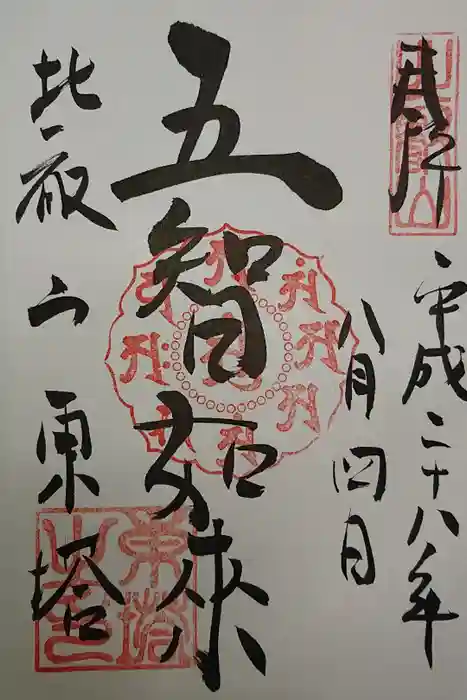 奉拝
平成二十八年
八月四日
五智如来
比叡山東塔